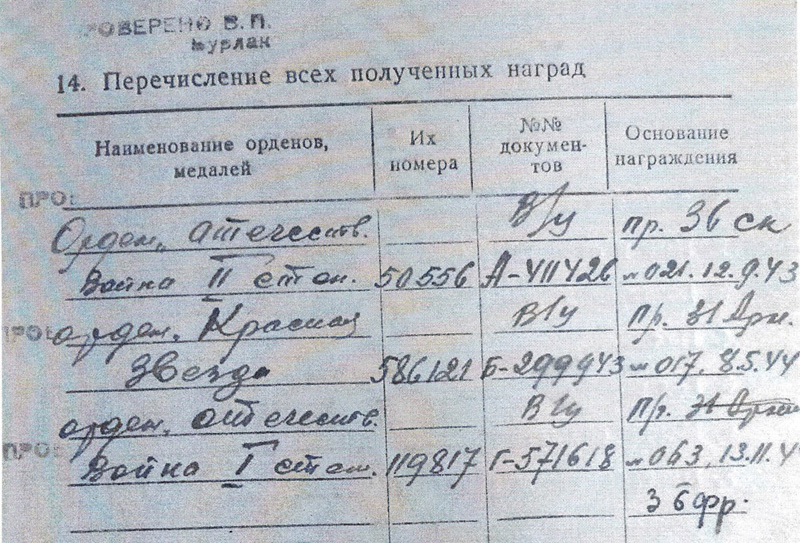 РОВЕРЕНО В.П.
Мурлак
14. Перечисление всех полученных наград
Наименование орденов, медалей
Их номера
№№ документов
Основание награждения
ПРО
Орден„ Отечеств.
В/у
пр. 36 ск
Война II степ.
50556
А-411426
№021. 12.9.43
ПРО
орден„ Красная
В/у
Пр. 31 Арм.
Звезда
586121
Б-299943
№017, 8.5.44
орден„ отечеств.
В/у
Пр. 31 Арм
ПРО
Война I степ.
119817
Г-571618
№063, 13.11.4
3 бфр.